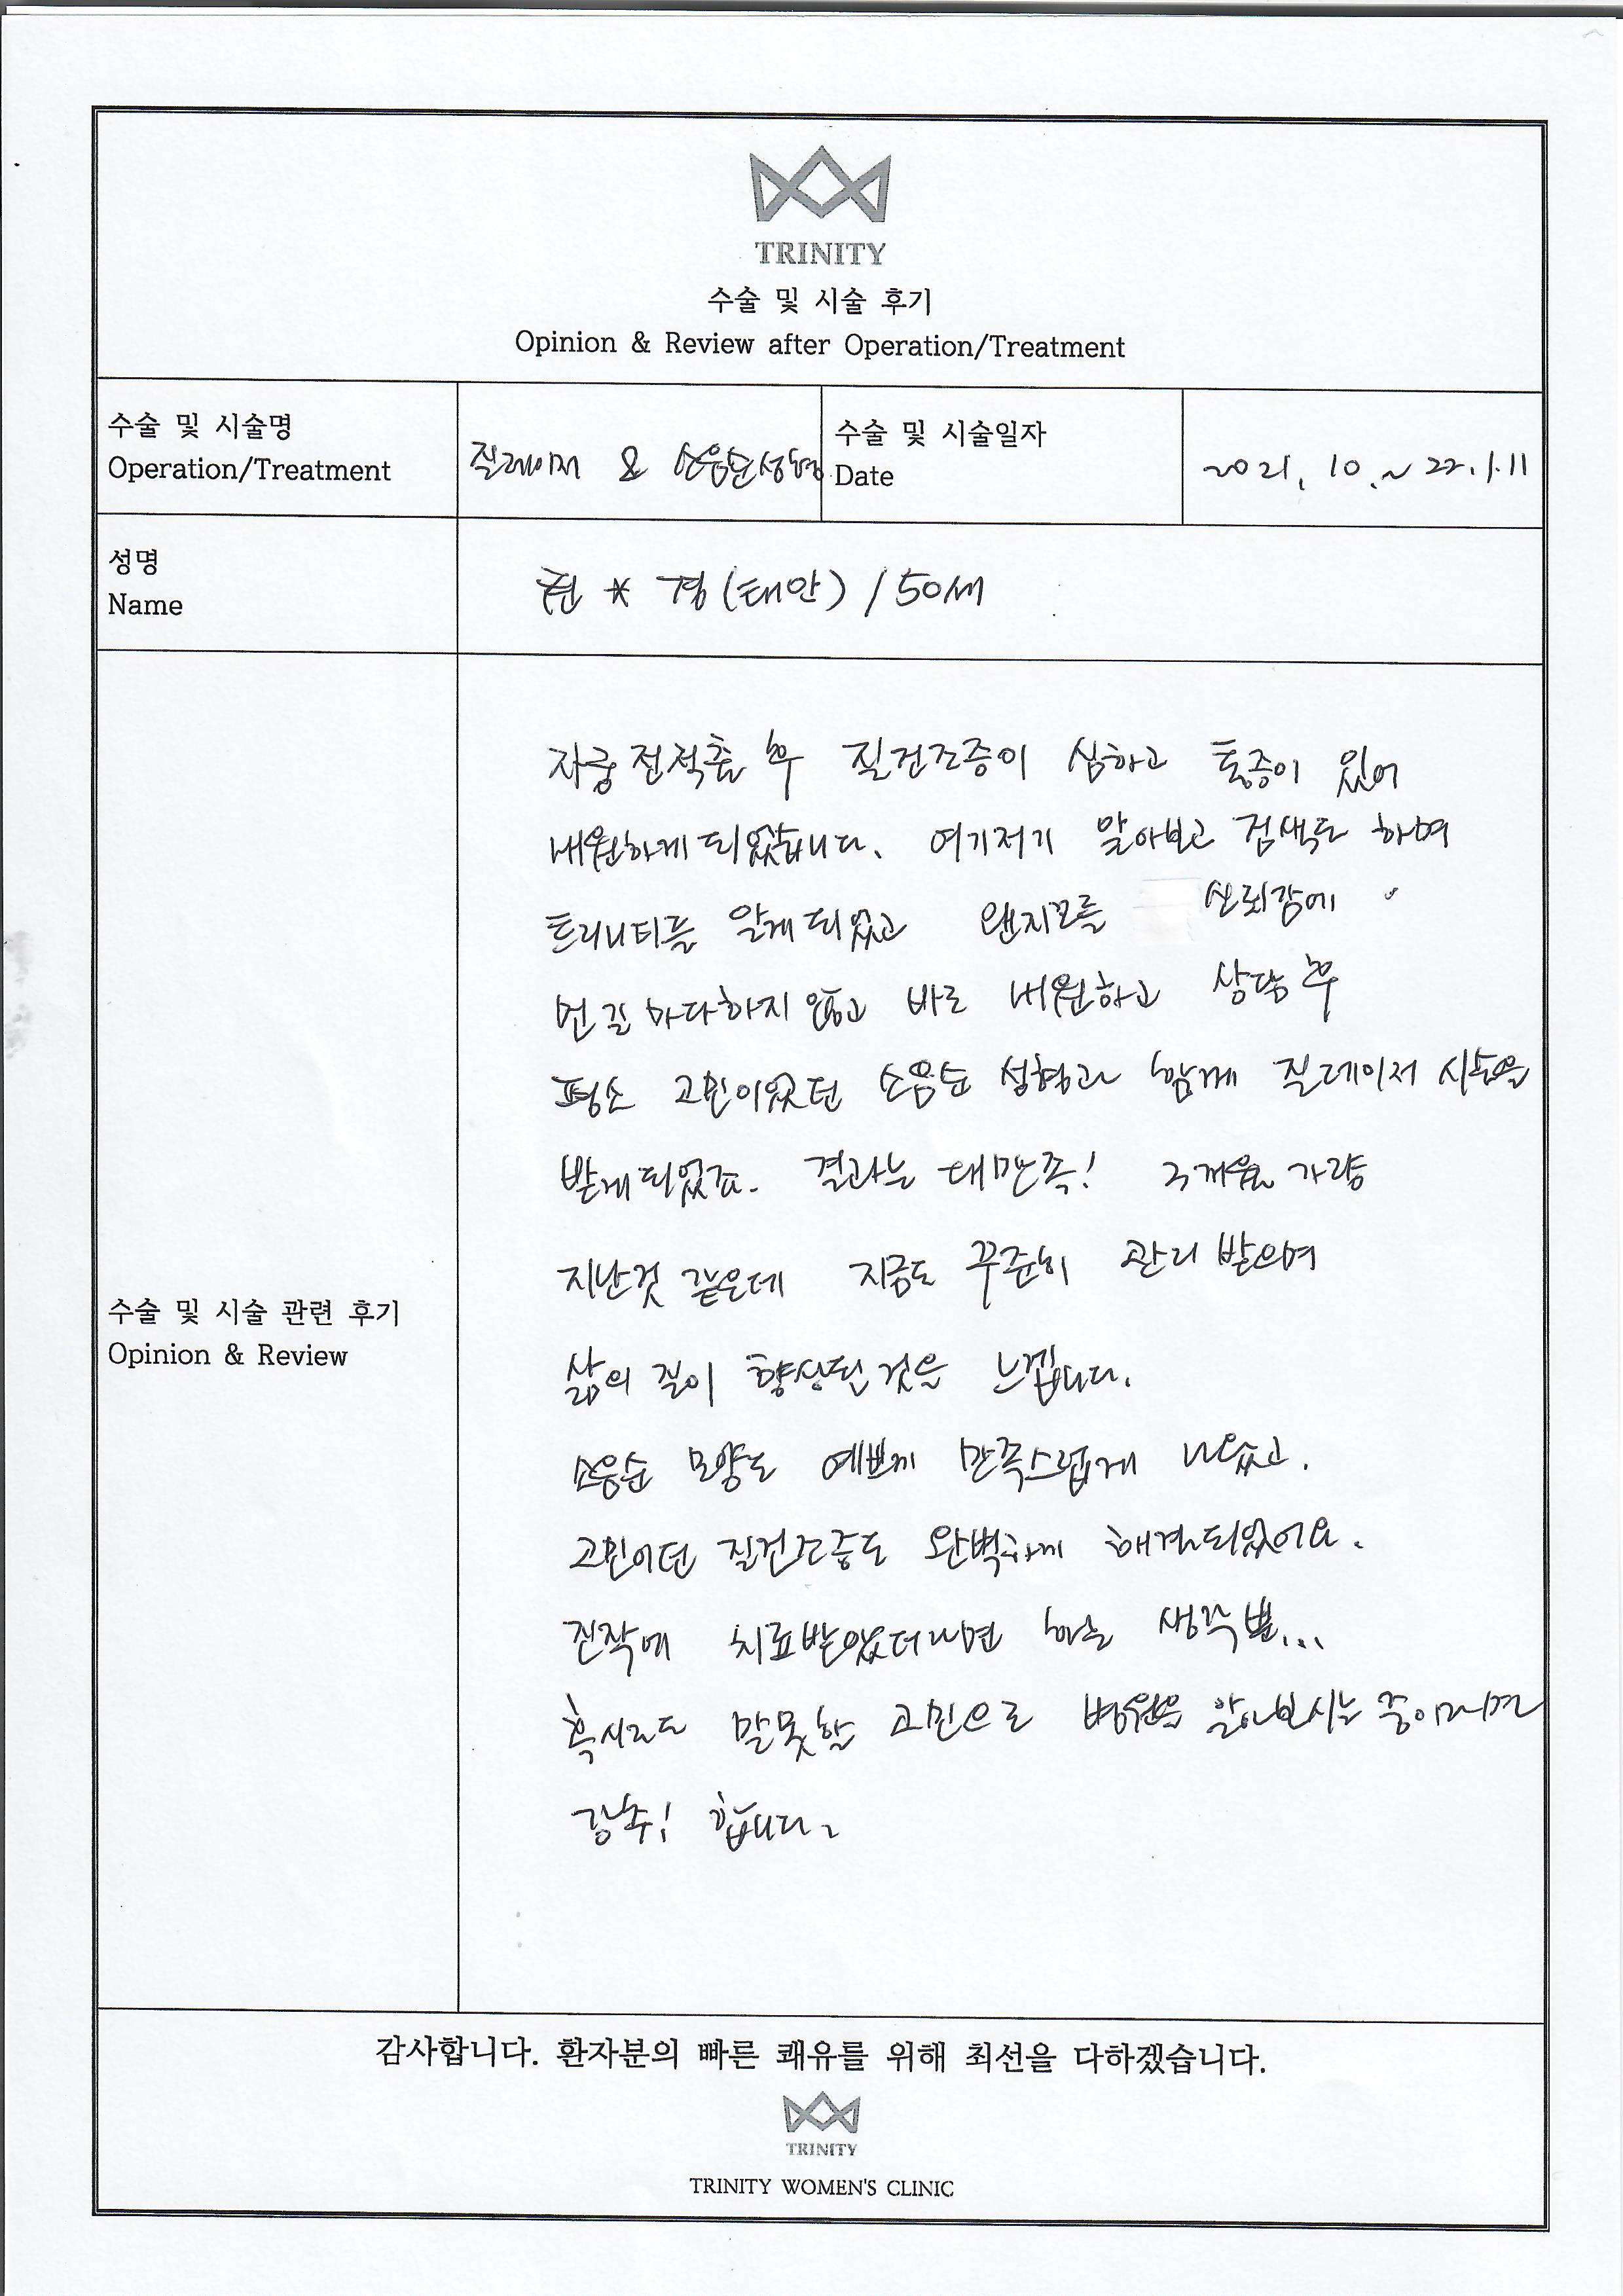 TRINITY
수술 및 시술 후기
Opinion & Review after Operation/Treatment
수술 및 시술명
Operation/Treatment
질레이저 & 소음순성형
수술 및 시술일자
Date
2021. 10. ~ 22. 1. 11
성명
Name
권 * 경 (태안) / 50세
수술 및 시술 관련 후기
Opinion & Review
자궁전적출 후 질건조증이 심하고 통증이 있어
내원하게 되었습니다. 여기저기 알아보고 검색도 하며
트리니티를 알게 되었고 왠지모를 신뢰감에
먼길 마다하지 않고 바로 내원하고 상담 후
평소 고민이었던 소음순 성형과 함께 질레이저 시술을
받게되었죠. 결과는 대만족! 3개월 가량
지난것 같은데 지금도 꾸준히 관리 받으며
삶의 질이 향상된 것을 느낍니다.
소음순 모양도 예쁘게 만족스럽게 나왔고.
고민이던 질건조증도 완벽하게 해결되었어요.
진작에 치료받았더라면 하는 생각뿐...
혹시라도 말못할 고민으로 병원을 알아보시는 중이라면
강추! 합니다.
감사합니다. 환자분의 빠른 쾌유를 위해 최선을 다하겠습니다.
TRINITY
TRINITY WOMEN'S CLINIC